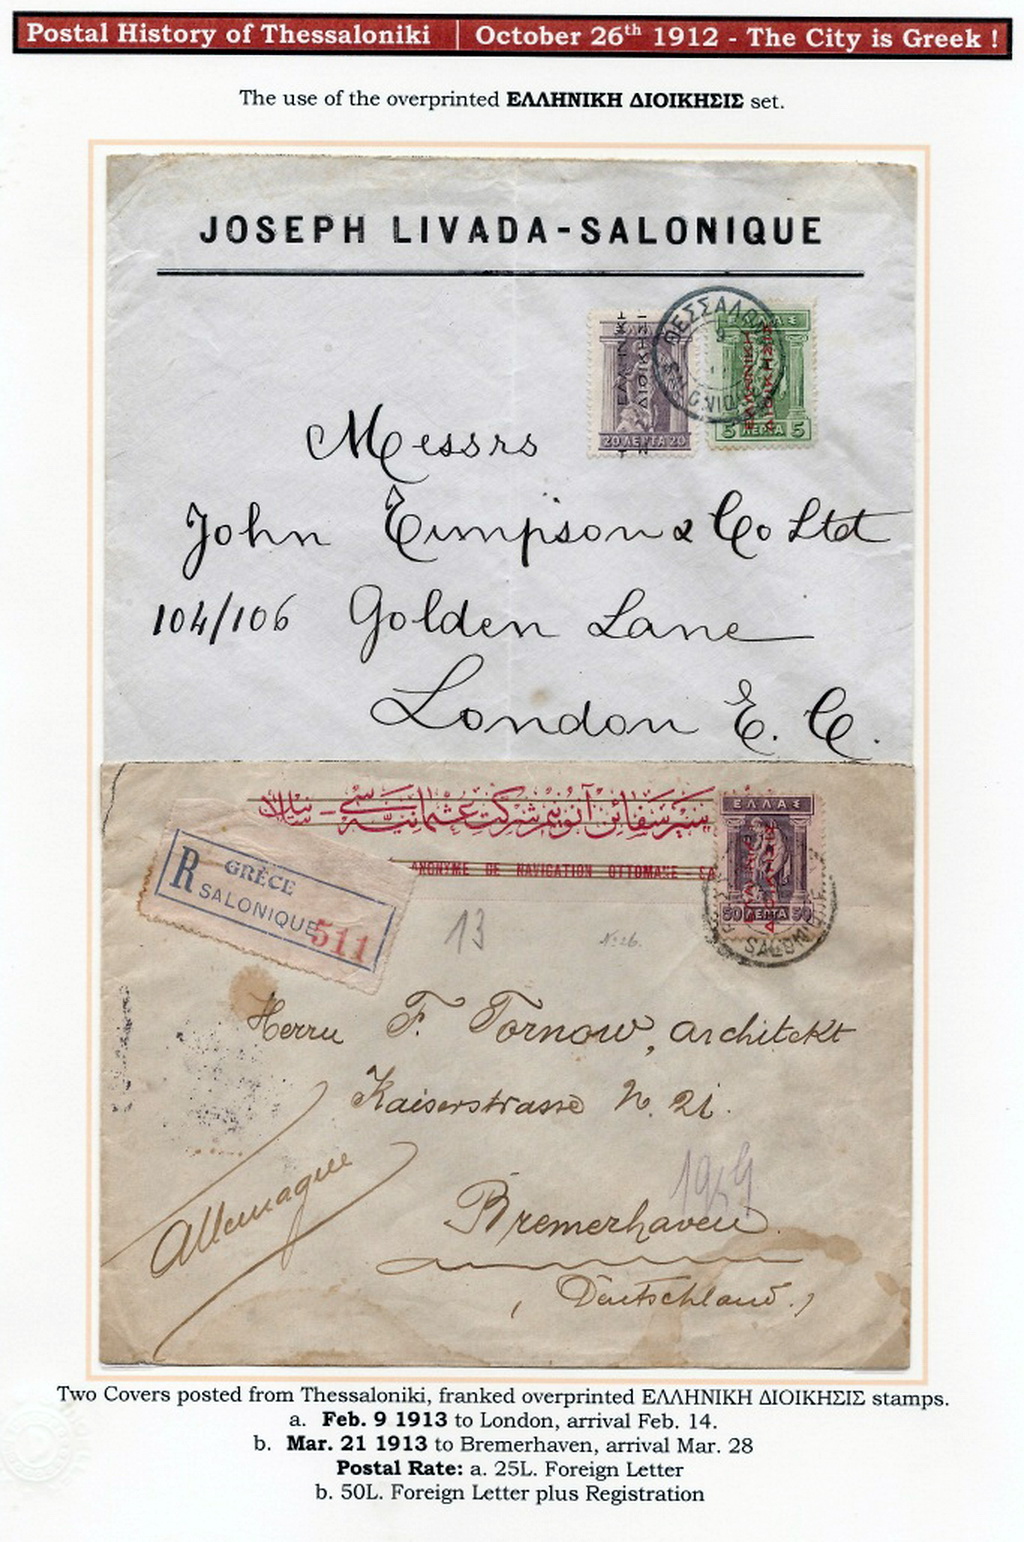 Postal History of Thessaloniki | October 26th 1912 - The City is Greek !
The use of the overprinted ΕΛΛΗΝΙΚΗ ΔΙΟΙΚΗΣΙΣ set.
JOSEPH LIVADA-SALONIQUE
ΕΛΛΑΣ
ΕΛΛΗΝΙΚΗ
ΔΙΟΙΚΗΣΙΣ
20 ΛΕΠΤΑ 20
5 ΛΕΠΤΑ 5
Messrs
John Eimpson & Co Ltd
104/106 Golden Lane
London E. C.
ΕΛΛΑΣ
ANONYME DE NAVIGATION OTTOMANE
50 ΛΕΠΤΑ 50
SALONIQUE
R GRÈCE
SALONIQUE 511
13
No 26.
Herrn F. Tornow, Architekt
Kaiserstrasse N. 21.
Allemagne
Bremerhaven
(Deutschland.)
Two Covers posted from Thessaloniki, franked overprinted ΕΛΛΗΝΙΚΗ ΔΙΟΙΚΗΣΙΣ stamps.
a. Feb. 9 1913 to London, arrival Feb. 14.
b. Mar. 21 1913 to Bremerhaven, arrival Mar. 28
Postal Rate: a. 25L. Foreign Letter
b. 50L. Foreign Letter plus Registration